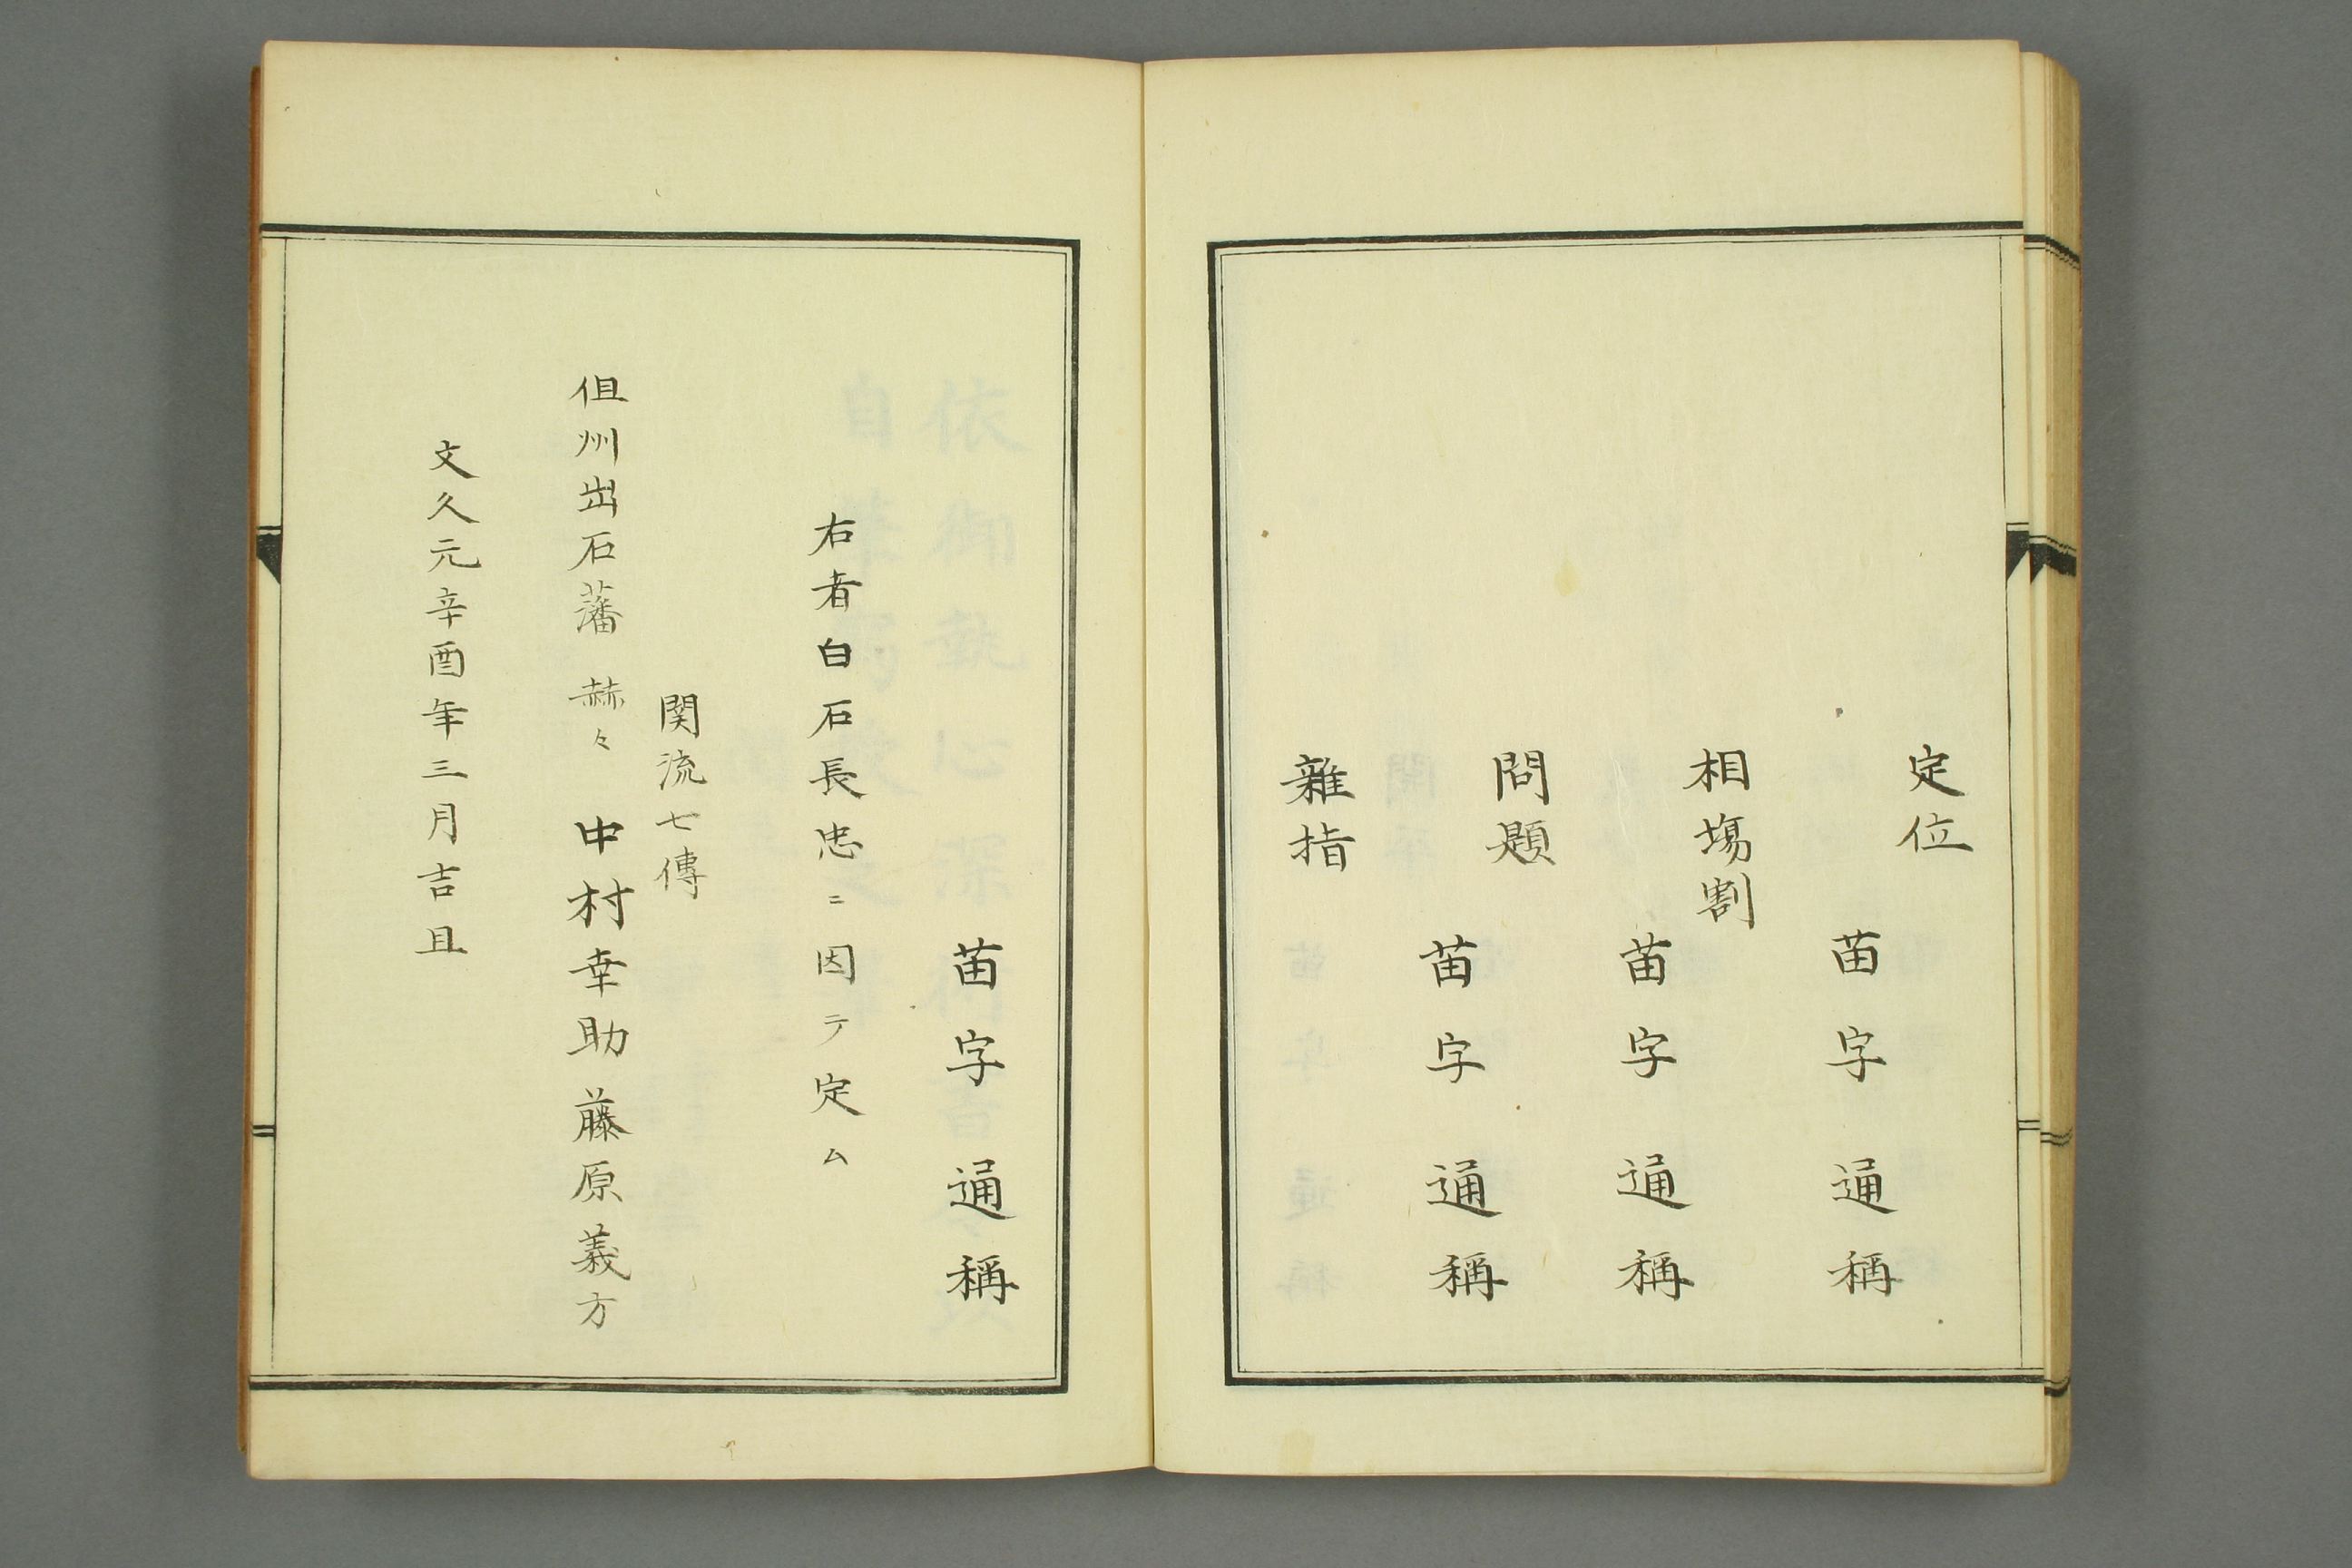 定位
苗字 通稱
相塲割
苗字 通稱
問題
苗字 通稱
雜指
苗字 通稱
右者白石長忠ニ因テ定ム
関流七傳
但州出石藩 赫々 中村幸助 藤原義方
文久元辛酉年三月吉旦